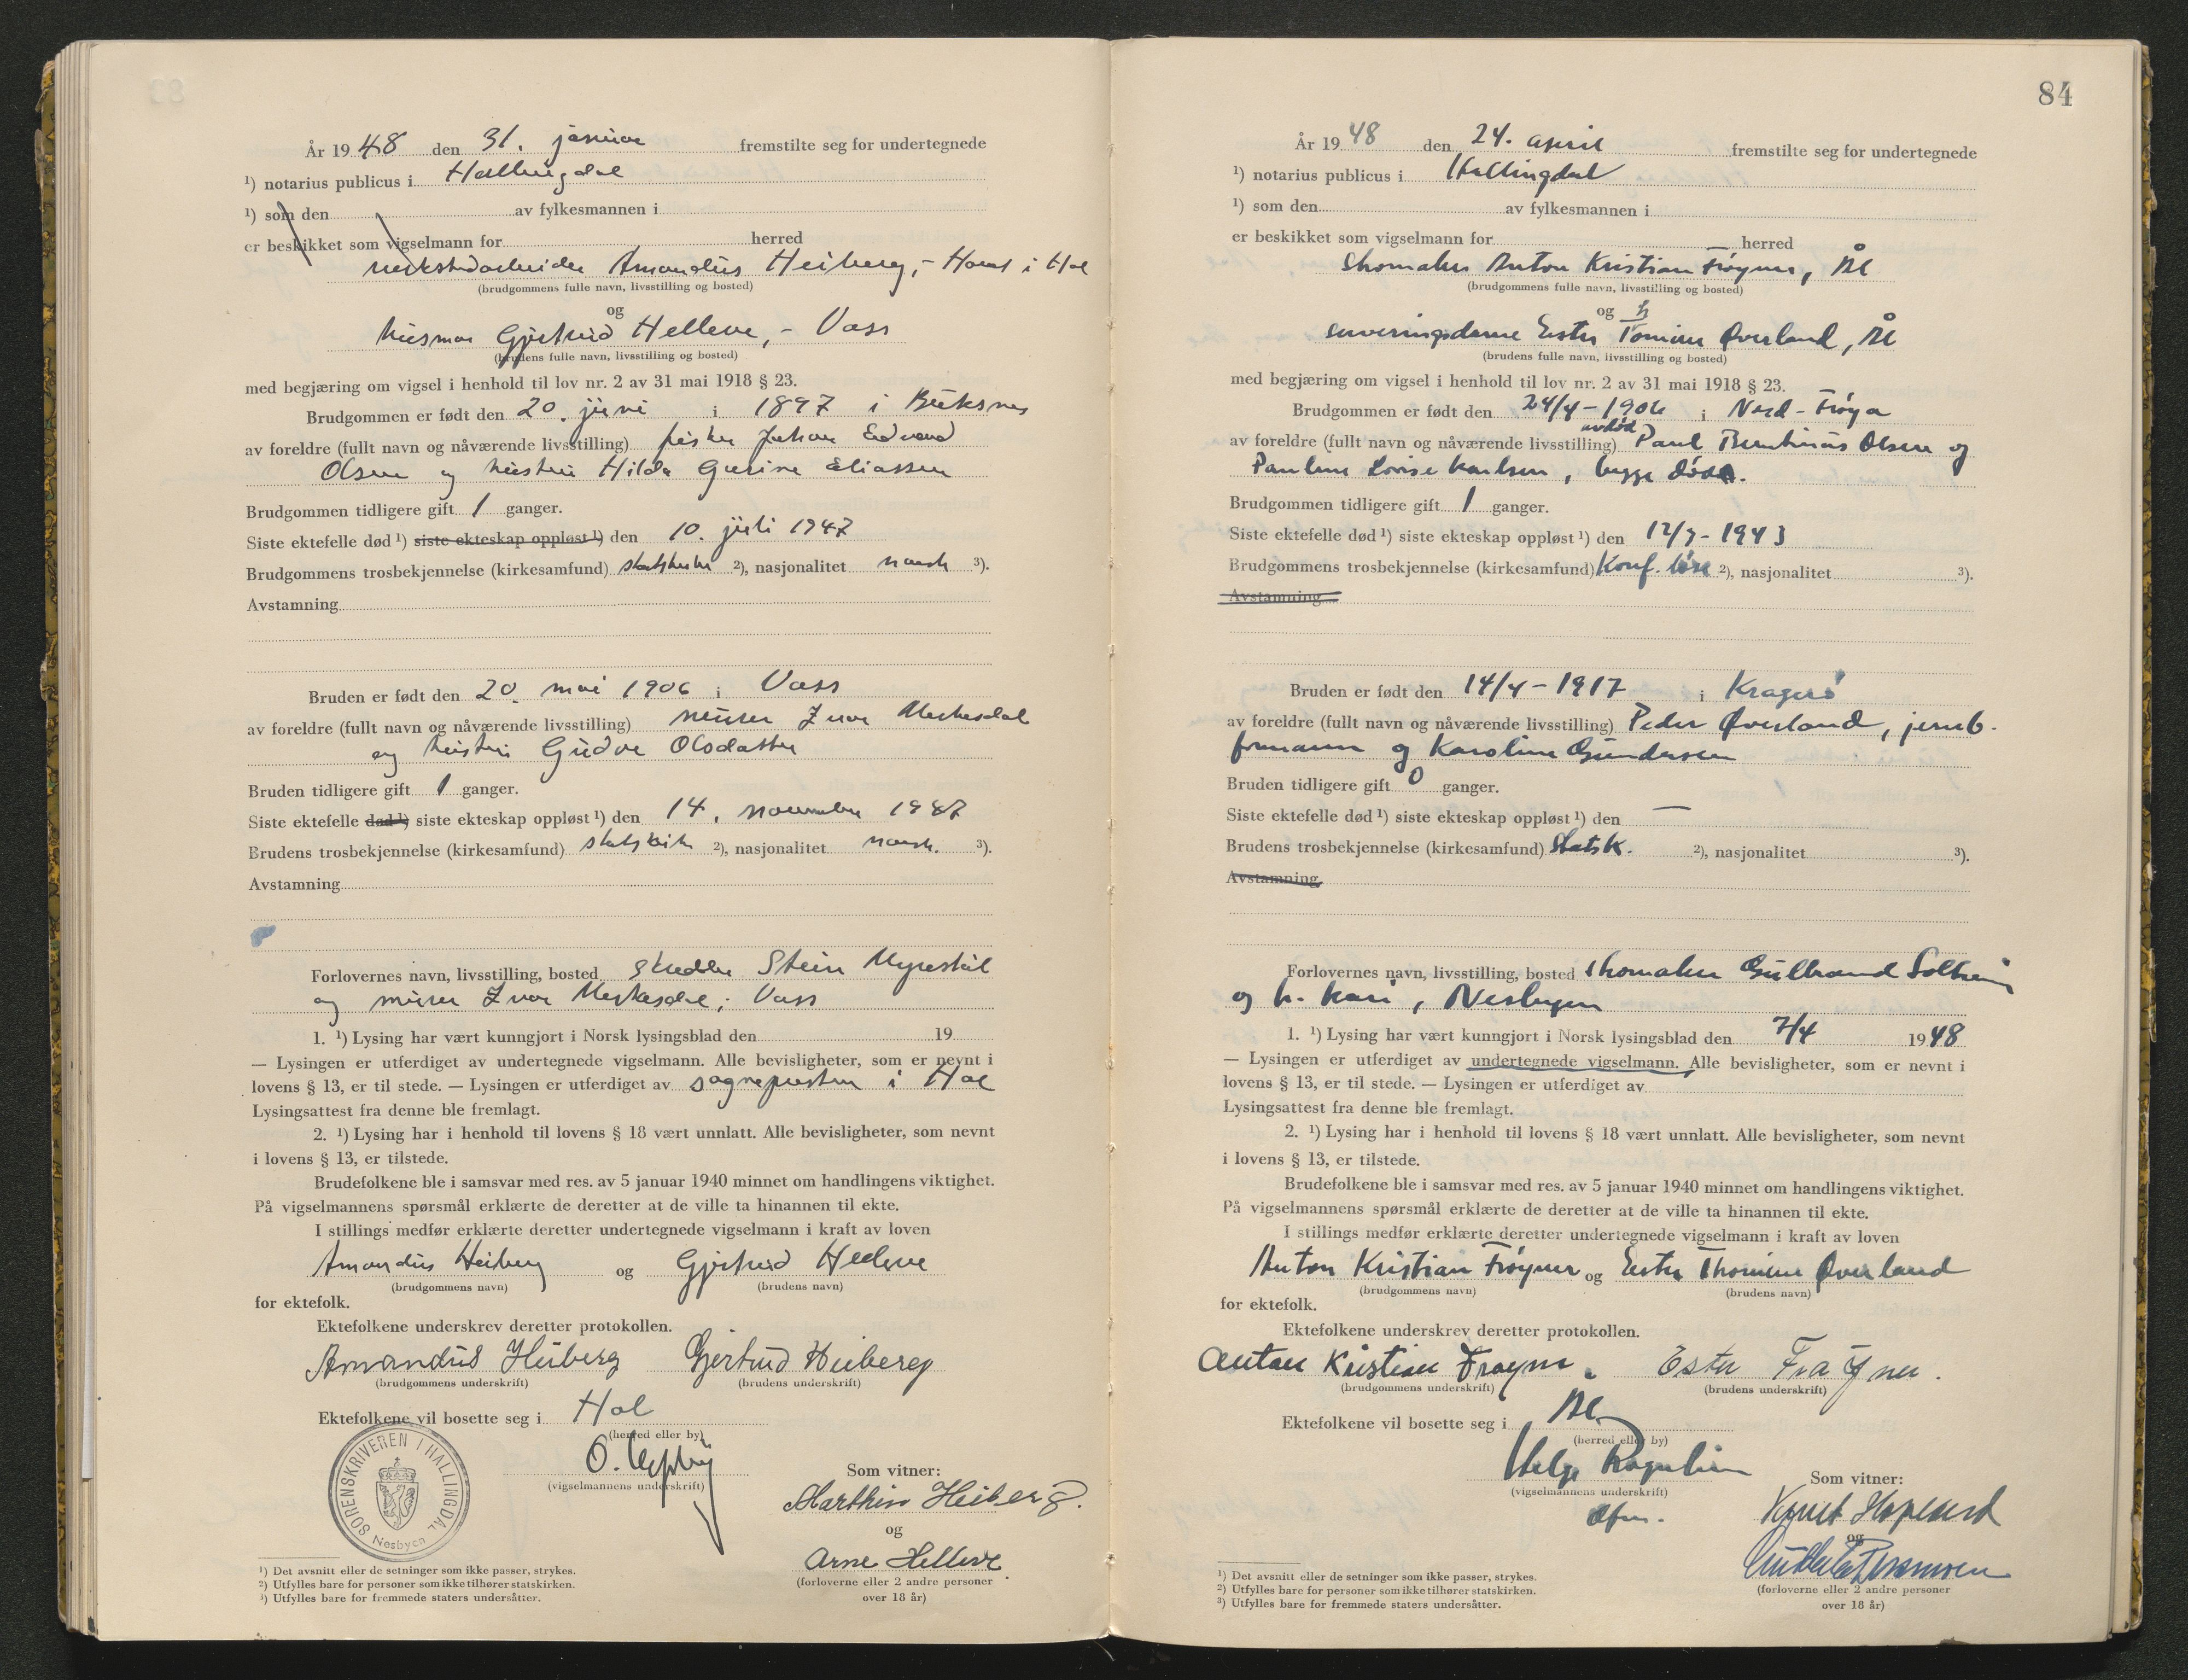 År 1948 den 31. januar fremstilte seg for undertegnede
¹) notarius publicus i Hallingdal
¹) som den av fylkesmannen i
er beskikket som vigselmann for herred
verkstedarbeider Amandus Heiberg, - Haval i Hol
(brudgommens fulle navn, livsstilling og bosted)
og
husmor Gjertrud Helleve, - Voss
(brudens fulle navn, livsstilling og bosted)
med begjæring om vigsel i henhold til lov nr. 2 av 31 mai 1918 § 23.
Brudgommen er født den 20. juni i 1897 i Buksnes
av foreldre (fullt navn og nåværende livsstilling) fisker Johan Edvard
Olsen og hustru Hilda Gurine Eliassen
Brudgommen tidligere gift 1 ganger.
Siste ektefelle død ¹) siste ekteskap oppløst ¹) den 10. juli 1947
Brudgommens trosbekjennelse (kirkesamfund) statskirke ²), nasjonalitet norsk ³).
Avstamning
Bruden er født den 20. mai 1906 i Voss
av foreldre (fullt navn og nåværende livsstilling) murer Ivar Merkesdal
og hustru Gudve Olsdatter
Bruden tidligere gift 1 ganger.
Siste ektefelle død ¹) siste ekteskap oppløst ¹) den 14. november 1947
Brudens trosbekjennelse (kirkesamfund) statskirke ²), nasjonalitet norsk. ³).
Avstamning
Forlovernes navn, livsstilling, bosted skredder Stein Myrestøl
og murer Ivar Merkesdal, Voss
1. ¹) Lysing har vært kunngjort i Norsk lysingsblad den 19
— Lysingen er utferdiget av undertegnede vigselmann. Alle bevisligheter, som er nevnt i
lovens § 13, er til stede. — Lysingen er utferdiget av sognepresten i Hol
Lysingsattest fra denne ble fremlagt.
2. ¹) Lysing har i henhold til lovens § 18 vært unnlatt. Alle bevisligheter, som nevnt
i lovens § 13, er tilstede.
Brudefolkene ble i samsvar med res. av 5 januar 1940 minnet om handlingens viktighet.
På vigselmannens spørsmål erklærte de deretter at de ville ta hinannen til ekte.
I stillings medfør erklærte deretter undertegnede vigselmann i kraft av loven
Amandus Heiberg og Gjertrud Helleve
(brudgommens navn) (brudens navn)
for ektefolk.
Ektefolkene underskrev deretter protokollen.
Amandus Heiberg Gjertrud Heiberg
(brudgommens underskrift) (brudens underskrift)
Ektefolkene vil bosette seg i Hol
(herred eller by)
SORENSKRIVEREN I HALLINGDAL
Nesbyen
O.
(vigselmannens underskrift)
Som vitner:
Marthin Heiberg.
og
Arne Helleve
(forloverne eller 2 andre personer
over 18 år)
¹) Det avsnitt eller de setninger som ikke passer, strykes.
²) Utfylles bare for personer som ikke tilhører statskirken.
³) Utfylles bare for fremmede staters undersåtter.
84
År 1948 den 24. april fremstilte seg for undertegnede
¹) notarius publicus i Hallingdal
¹) som den av fylkesmannen i
er beskikket som vigselmann for herred
Skomaker Anton Kristian Frøyner, Ål
(brudgommens fulle navn, livsstilling og bosted)
og h
serveringsdame Ester Tomine Øverland, Ål
(brudens fulle navn, livsstilling og bosted)
med begjæring om vigsel i henhold til lov nr. 2 av 31 mai 1918 § 23.
Brudgommen er født den 24/4-1906 i Nord-Frøya
avdød
av foreldre (fullt navn og nåværende livsstilling) Paul Berntinus Olsen og
Pauline Lovise Karlsen, begge døde.
Brudgommen tidligere gift 1 ganger.
Siste ektefelle død ¹) siste ekteskap oppløst ¹) den 12/7-1943
Brudgommens trosbekjennelse (kirkesamfund) Konf. løse ²), nasjonalitet ³).
Avstamning
Bruden er født den 14/4-1917 i Kragerø
av foreldre (fullt navn og nåværende livsstilling) Peder Øverland, jernb.
formann og Karoline Gundersen
Bruden tidligere gift 0 ganger.
Siste ektefelle død ¹) siste ekteskap oppløst ¹) den —
Brudens trosbekjennelse (kirkesamfund) Statsk. ²), nasjonalitet ³).
Avstamning
Forlovernes navn, livsstilling, bosted skomaker Gulbrand Solheim
og h. Kari, Nesbyen
1. ¹) Lysing har vært kunngjort i Norsk lysingsblad den 7/4 1948
— Lysingen er utferdiget av undertegnede vigselmann. Alle bevisligheter, som er nevnt i
lovens § 13, er til stede. — Lysingen er utferdiget av
Lysingsattest fra denne ble fremlagt.
2. ¹) Lysing har i henhold til lovens § 18 vært unnlatt. Alle bevisligheter, som nevnt
i lovens § 13, er tilstede.
Brudefolkene ble i samsvar med res. av 5 januar 1940 minnet om handlingens viktighet.
På vigselmannens spørsmål erklærte de deretter at de ville ta hinannen til ekte.
I stillings medfør erklærte deretter undertegnede vigselmann i kraft av loven
Anton Kristian Frøyner og Ester Thomine Øverland
(brudgommens navn) (brudens navn)
for ektefolk.
Ektefolkene underskrev deretter protokollen.
Anton Kristian Frøyner. Ester Frøyner.
(brudgommens underskrift) (brudens underskrift)
Ektefolkene vil bosette seg i Ål
(herred eller by)
Helge
(vigselmannens underskrift)
Som vitner:
Knut
og
(forloverne eller 2 andre personer
over 18 år)
¹) Det avsnitt eller de setninger som ikke passer, strykes.
²) Utfylles bare for personer som ikke tilhører statskirken.
³) Utfylles bare for fremmede staters undersåtter.